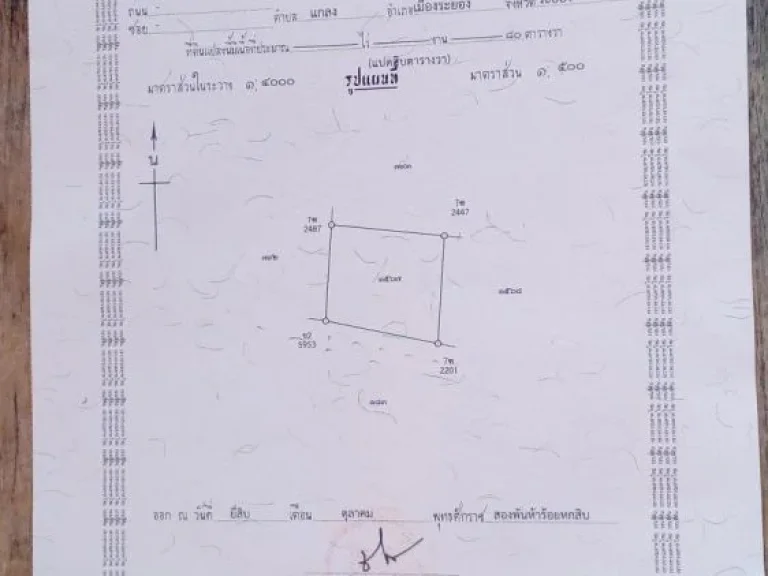 ถนน - ตำบล แกลง อำเภอเมืองระยอง
ซอย -
ที่ดินแปลงนี้มีเนื้อที่ประมาณ ไร่ งาน ๘๐ ตารางวา
(แปดสิบตารางวา)
มาตราส่วนในระวาง ๑:๔๐๐๐ รูปแผนที่ มาตราส่วน ๑:๕๐๐
น
7ฑ
2487
7ฑ
2447
๑๕๖๗
๑๕๖๘
ข2
5953
7ฑ
2201
ออก ณ วันที่ ยี่สิบ เดือน ตุลาคม พุทธศักราช สองพันห้าร้อยหกสิบ